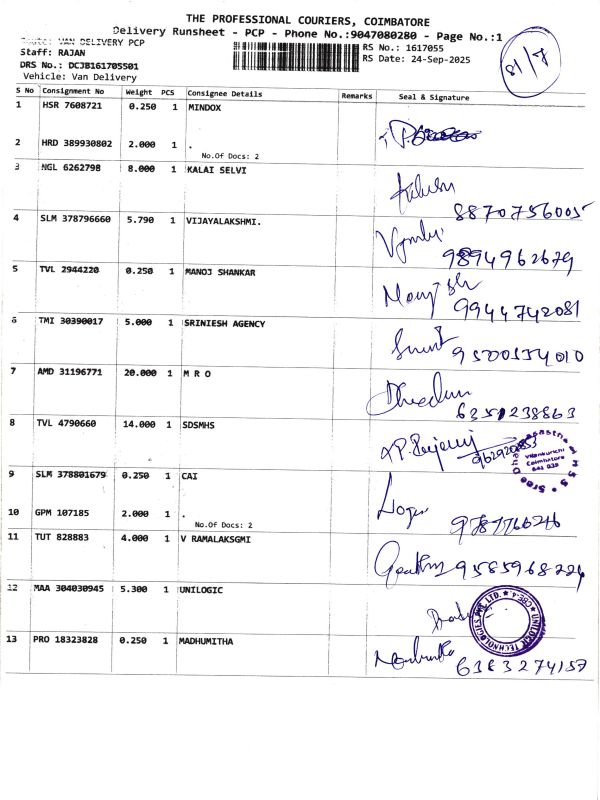 THE PROFESSIONAL COURIERS, COIMBATORE
Delivery Runsheet - PCP - Phone No.:9047080280 - Page No.:1
VAN DELIVERY PCP
Staff: RAJAN
RS No.: 1617055
DRS No.: DCJB161705501
RS Date: 24-Sep-2025
Vehicle: Van Delivery
81/7
S No Consignment No Weight PCS Consignee Details Remarks Seal & Signature
1 HSR 7608721 0.250 1 MINDOX
2 HRD 389930802 2.000 1 .
No.Of Docs: 2
3 NGL 6262798 8.000 1 KALAI SELVI
8870756005
4 SLM 378796660 5.790 1 VIJAYALAKSHMI.
9894962679
5 TVL 2944220 0.250 1 MANOJ SHANKAR
9944742081
6 TMI 30390017 5.000 1 SRINIESH AGENCY
7 AMD 31196771 20.000 1 M R O
8 TVL 4790660 14.000 1 SDSMHS
Vilankurichi
Coimbatore
641 035
9 SLM 378801679 0.250 1 CAI
10 GPM 107185 2.000 1 .
No.Of Docs: 2
11 TUT 828883 4.000 1 V RAMALAKSGMI
12 MAA 304030945 5.300 1 UNILOGIC
UNILOGIC TECHNOLOGIES PVT. LTD.
CBE-4
13 PRO 18323828 0.250 1 MADHUMITHA
6383274157